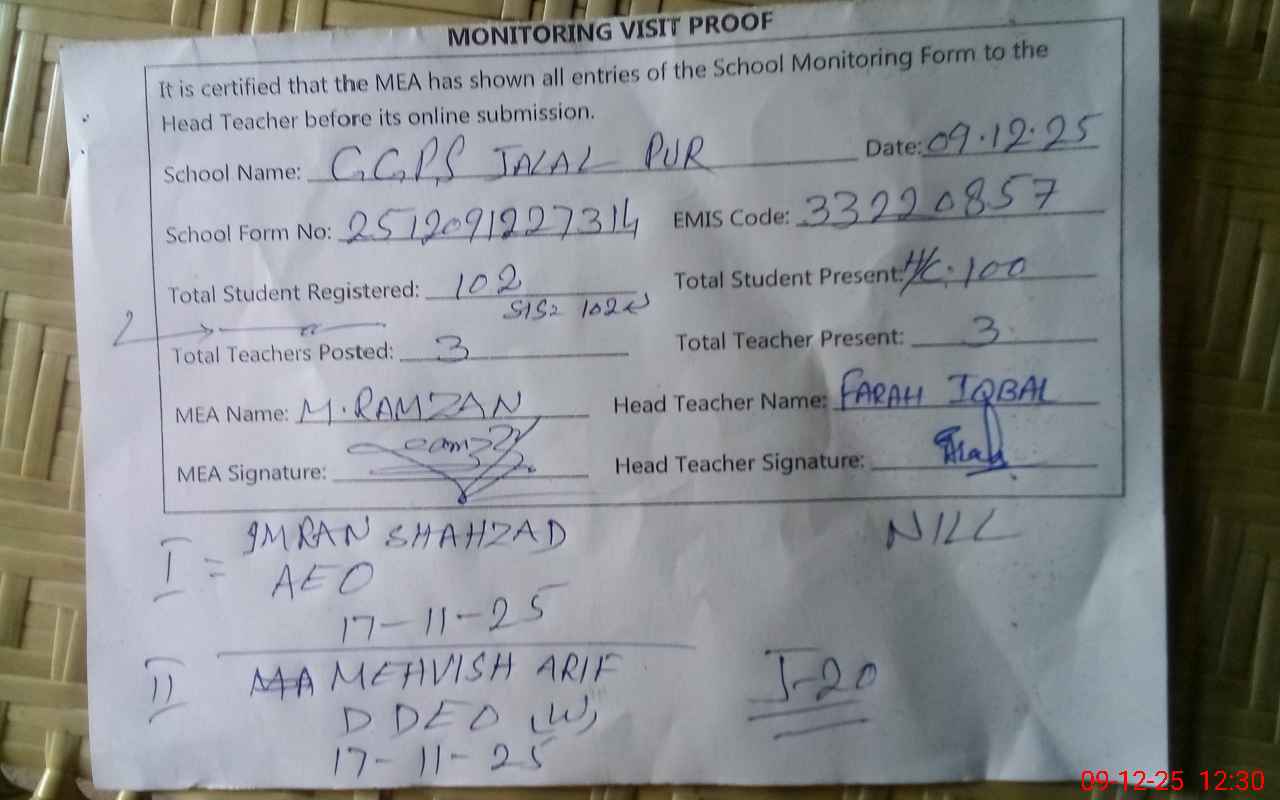 MONITORING VISIT PROOF
It is certified that the MEA has shown all entries of the School Monitoring Form to the
Head Teacher before its online submission.
School Name: G.G.P.S JALAL PUR Date: 09.12.25
School Form No: 2512091227314 EMIS Code: 33220857
Total Student Registered: 102 Total Student Present: H/C. 100
SIS= 102
2
Total Teachers Posted: 3 Total Teacher Present: 3
MEA Name: M.RAMZAN Head Teacher Name: FARAH IQBAL
MEA Signature: Head Teacher Signature: Farah
I = IMRAN SHAHZAD NILL
AEO
17-11-25
II MEHVISH ARIF
D.DEO (W) I-20
17-11-25
09-12-25 12:30